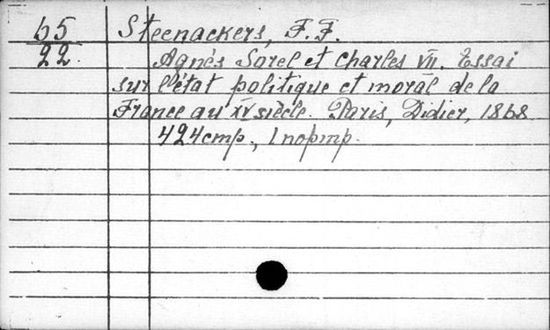 65 Steenackers, F. F.
22. Agnés Sorel et Charles VII. Essai
sur l'état politique et moral de la
France au XV siècle. Paris, Didier, 1868
424 стр., 1 портр.